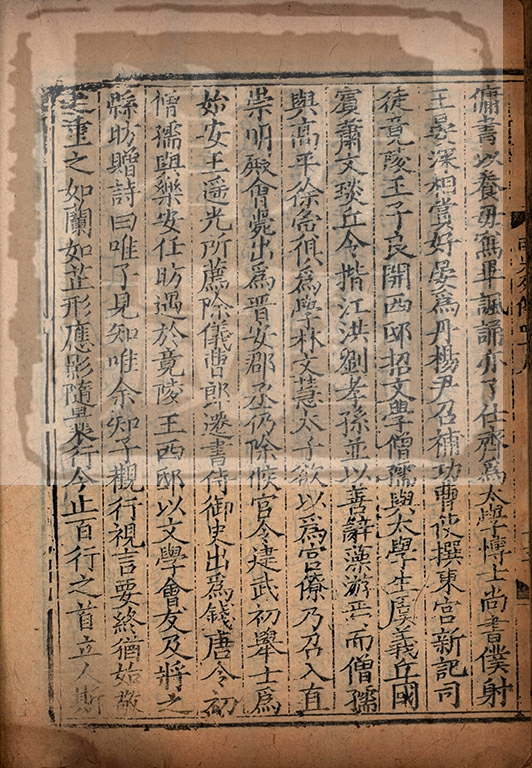 傭書以養母寫畢諷誦亦了仕齊爲太學博士尚書僕射
王晏深相賞好晏爲丹楊尹召補功曹使撰東宮新記司
徒竟陵王子良開西邸招文學僧孺與太學生虞羲丘國
賓蕭文琰丘令揩江洪劉孝孫並以善辭藻游焉而僧孺
與高平徐夤俱爲學林文慧太子欲以爲宮僚乃召入直
崇明殿會薨出爲晉安郡丞仍除候官令建武初舉士爲
始安王遙光所薦除儀曹郎遷書侍御史出爲錢唐令初
僧孺與樂安任昉遇於竟陵王西邸以文學會友及將之
縣昉贈詩曰唯子見知唯余知子觀行視言要終猶始敬
之重之如蘭如芷形應影隨曩行今止百行之首立人斯